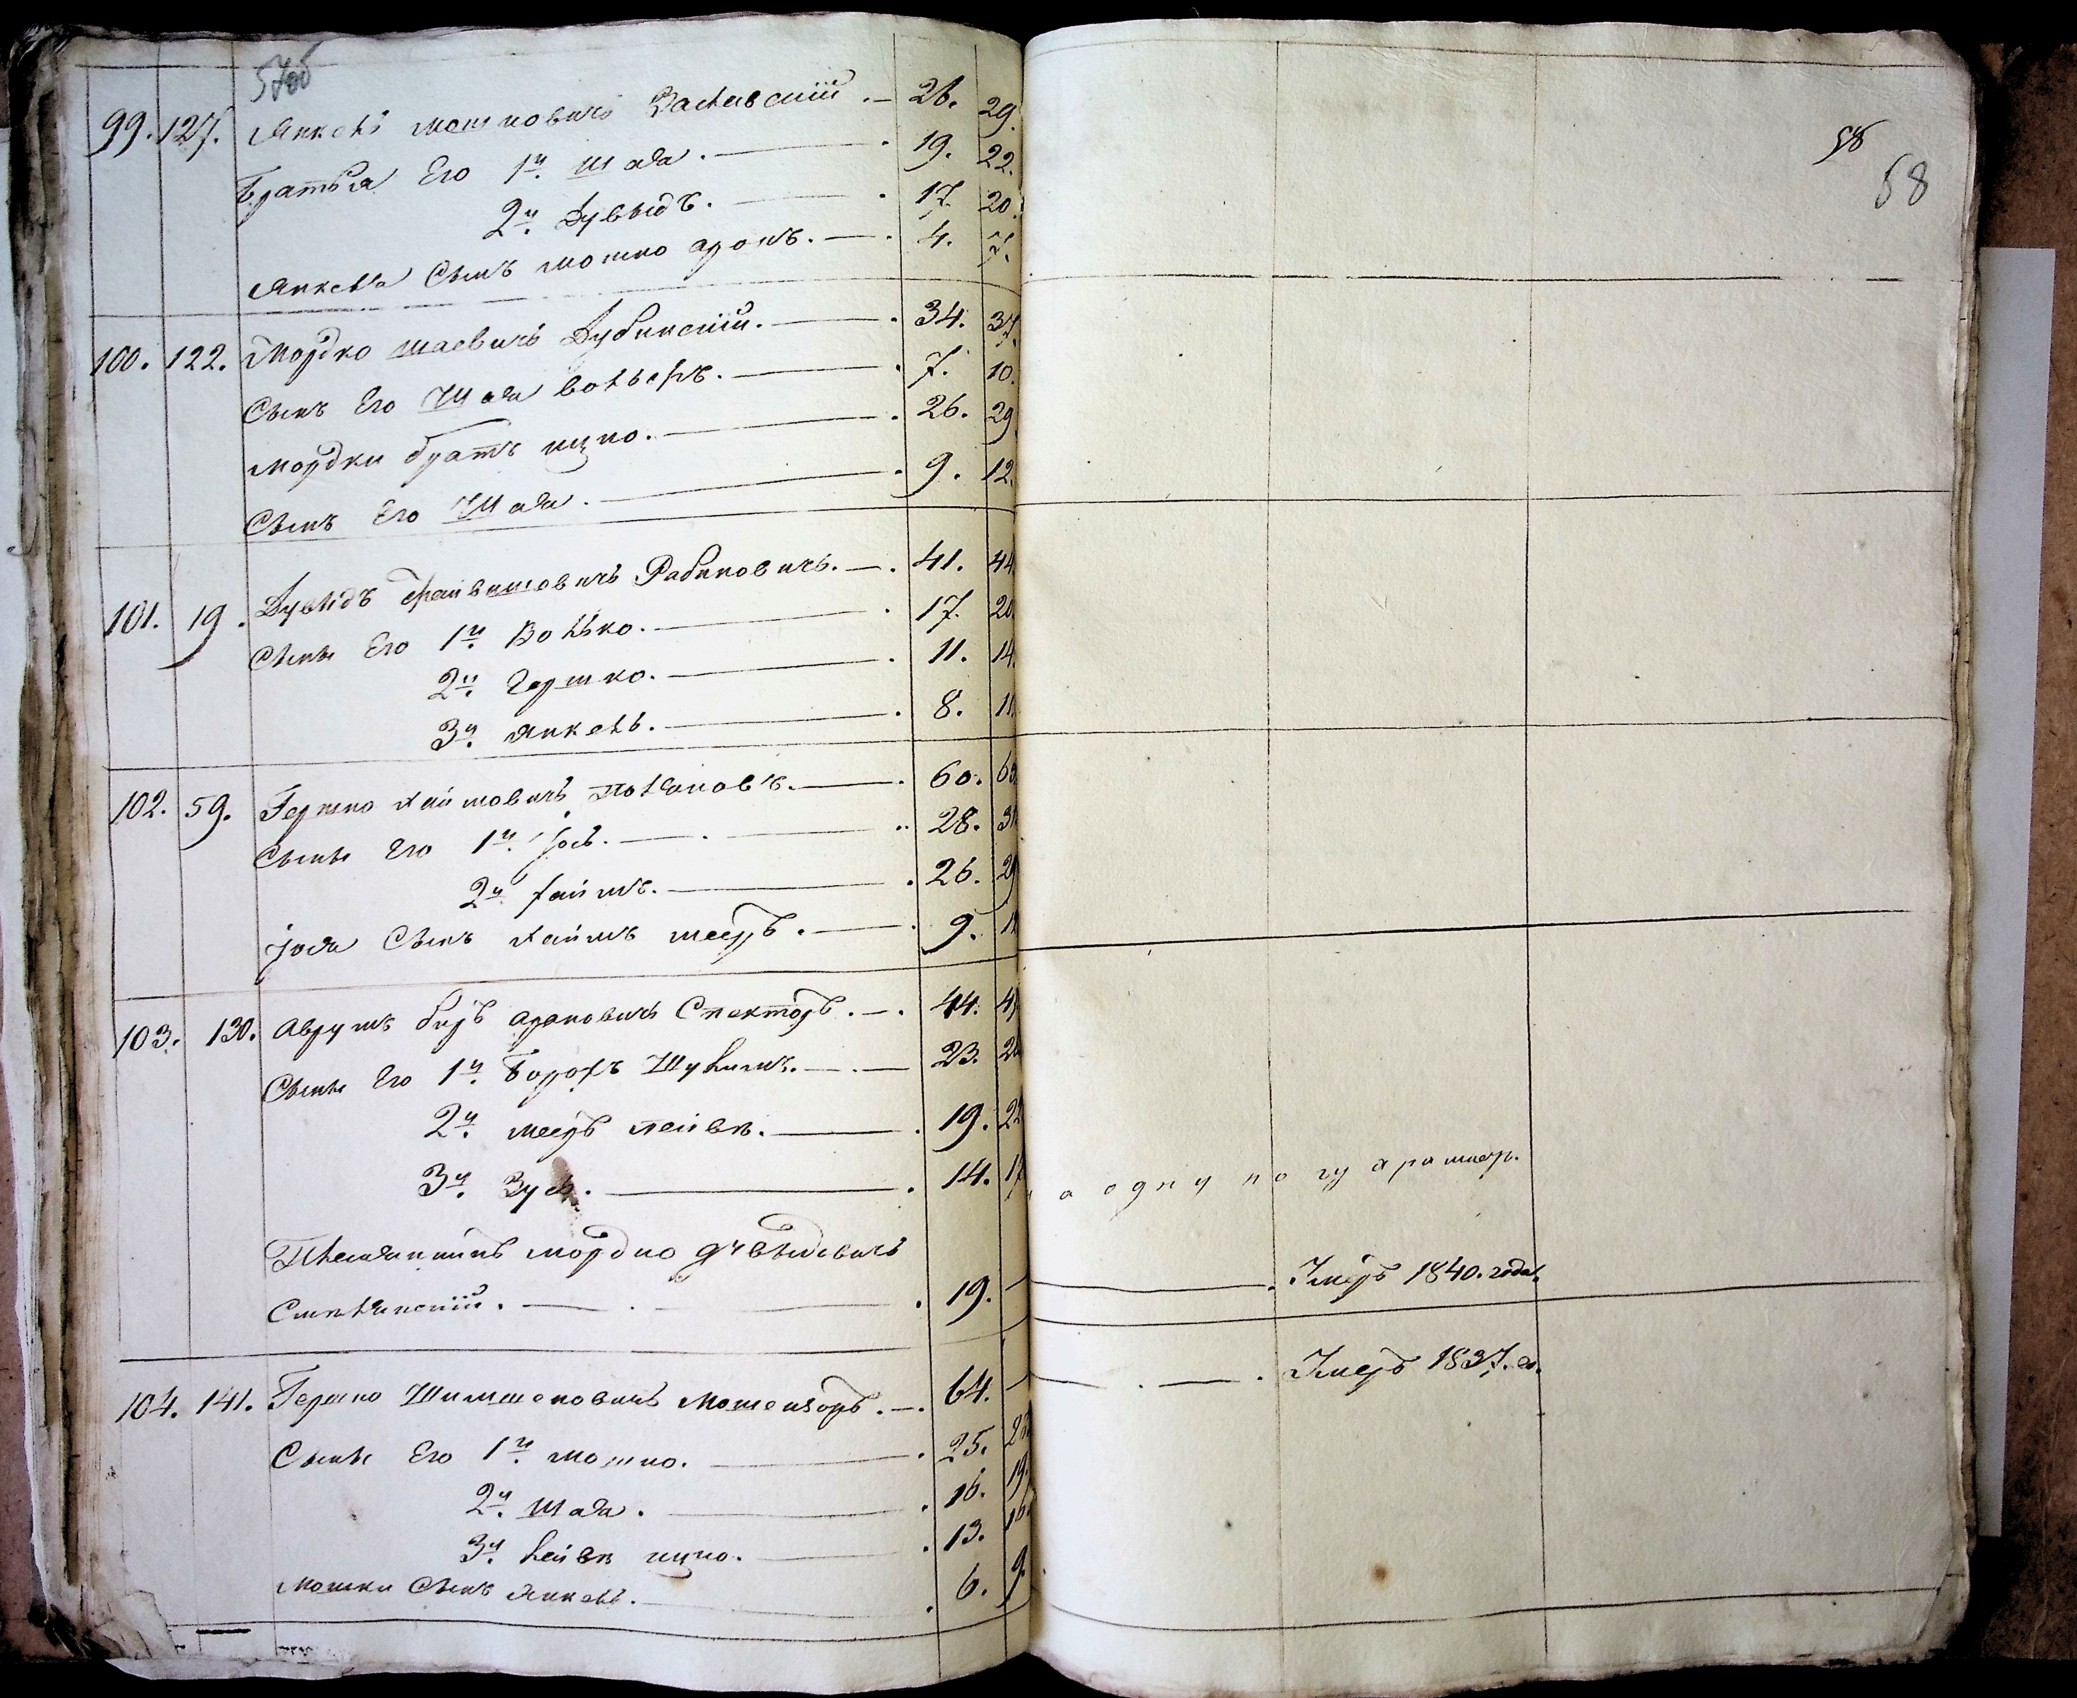 57об
99. 127. Янкель Мошковичъ Заславскій. 26. 29.
Братья Его 1й Шая. 19. 22.
2й Дувыдъ. 17. 20.
Янкеля Сынъ Мошко Аронъ. 4. 7.
100. 122. Мордко Шаевичъ Дубинскій. 34. 37.
Сынъ Его Шая Вольфъ. 7. 10.
Мордки братъ Ицко. 26. 29.
Сынъ Его Шая. 9. 12.
101. 19. Дувидъ Рабиновичъ. 41. 44.
Сыны Его 1й Волько. 17. 20.
2й Гершко. 11. 14.
3й Янкель. 8. 11.
102. 59. Гершко Хаимовичъ 60. 63.
Сыны Его 1й Іось. 28. 31.
2й Хаимъ. 26. 29
Іося Сынъ Хаимъ Мееръ. 9. 12
103. 130. Аврумъ Беръ Ароновичъ Спекторъ. 44. 47
Сыны Его 1й Борохъ Шулимъ. 23. 26
2й Мееръ Лейба. 19. 22
3й Зусь. 14. 17 на одну ногу храмаетъ.
Племянникъ Мордко Дувыдовичъ
Смелянскій. 19. — Умеръ 1840. года.
104. 141. Гершко Шимшоновичъ 64. — Умеръ 1837. го.
Сыны Его 1й Мошко. 25. 28
2й Шая. 16. 19.
3й Лейба Ицко. 13. 16.
Мошки Сынъ Янкель. 6. 9.
58
58